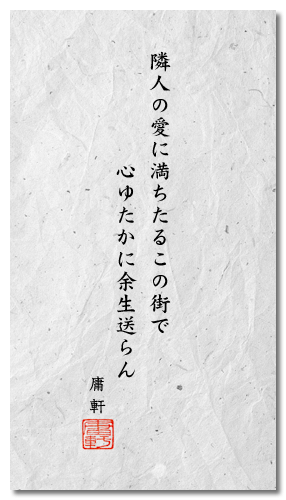 隣人の愛に満ちたるこの街で
心ゆたかに余生送らん
庸軒
庸軒